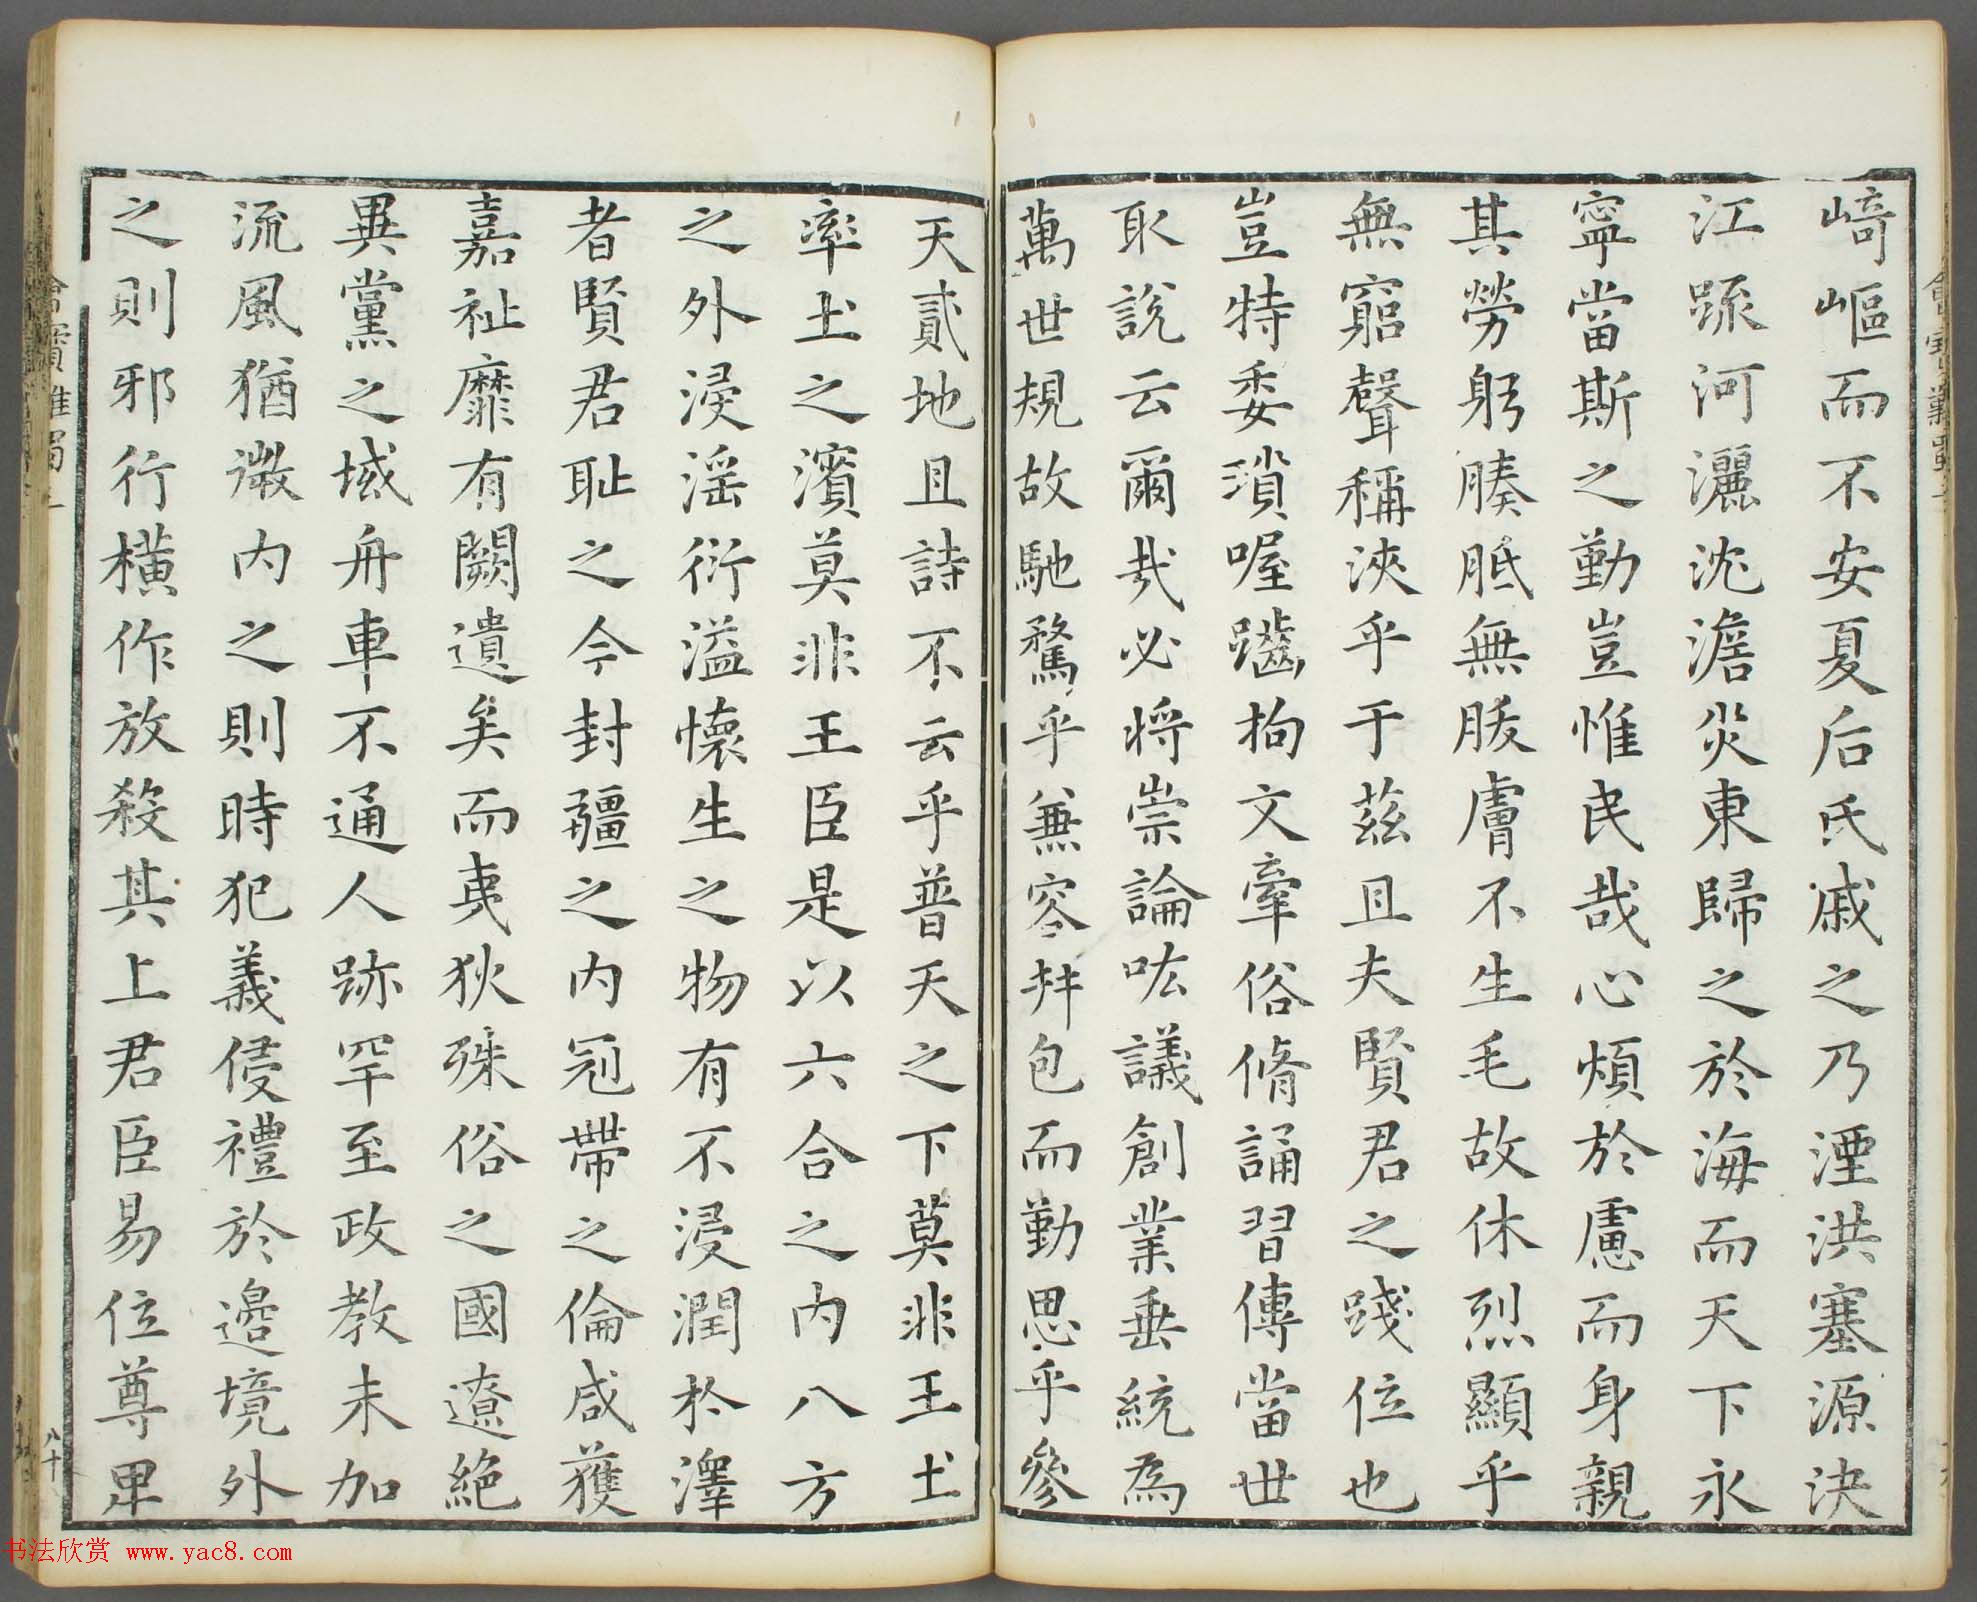 崎嶇而不安夏后氏戚之乃湮洪塞源決
江疏河灑沈澹災東歸之於海而天下永
寧當斯之勤豈惟民哉心煩於慮而身親
其勞躬腠胝無胈膚不生毛故休烈顯乎
無窮聲稱浹乎于茲且夫賢君之踐位也
豈特委瑣喔躖拘文牽俗脩誦習傳當世
取說云爾哉必將崇論吰議創業垂統為
萬世規故馳騖乎兼容并包而勤思乎參
天貳地且詩不云乎普天之下莫非王土
率土之濱莫非王臣是以六合之內八方
之外浸淫衍溢懷生之物有不浸潤於澤
者賢君恥之今封疆之內冠帶之倫咸獲
嘉祉靡有闕遺矣而夷狄殊俗之國遼絕
異黨之域舟車不通人跡罕至政教未加
流風猶微內之則時犯義侵禮於邊境外
之則邪行橫作放殺其上君臣易位尊卑
八十
书法欣赏 www.yac8.com